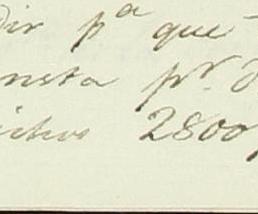 dir pª que
nsta pr. d
ichos 2800